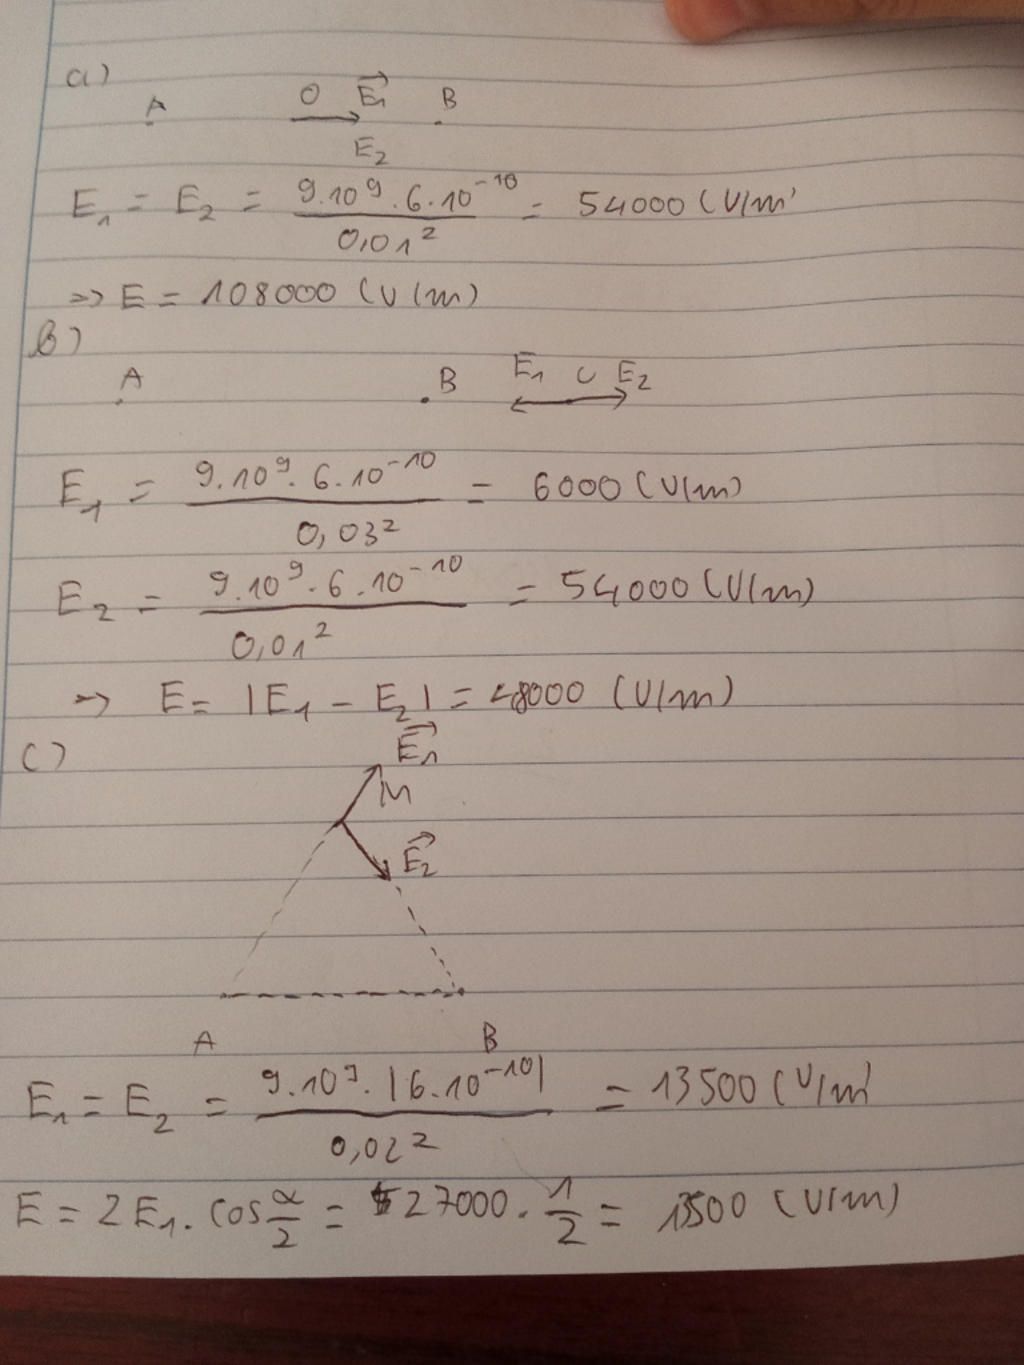 a)
A O E₁ B
E₂
E₁ = E₂ = 9.10⁹.6.10⁻¹⁰ / 0,01² = 54000 (V/m)
=> E = 108000 (V/m)
b)
A B E₁ C E₂
E₁ = 9.10⁹.6.10⁻¹⁰ / 0,03² = 6000 (V/m)
E₂ = 9.10⁹.6.10⁻¹⁰ / 0,01² = 54000 (V/m)
=> E = |E₁ - E₂| = 48000 (V/m)
c)
E₁
M
E₂
A B
E₁ = E₂ = 9.10⁹.|6.10⁻¹⁰| / 0,02² = 13500 (V/m)
E = 2E₁.cos α/2 = 27000. 1/2 = 13500 (V/m)